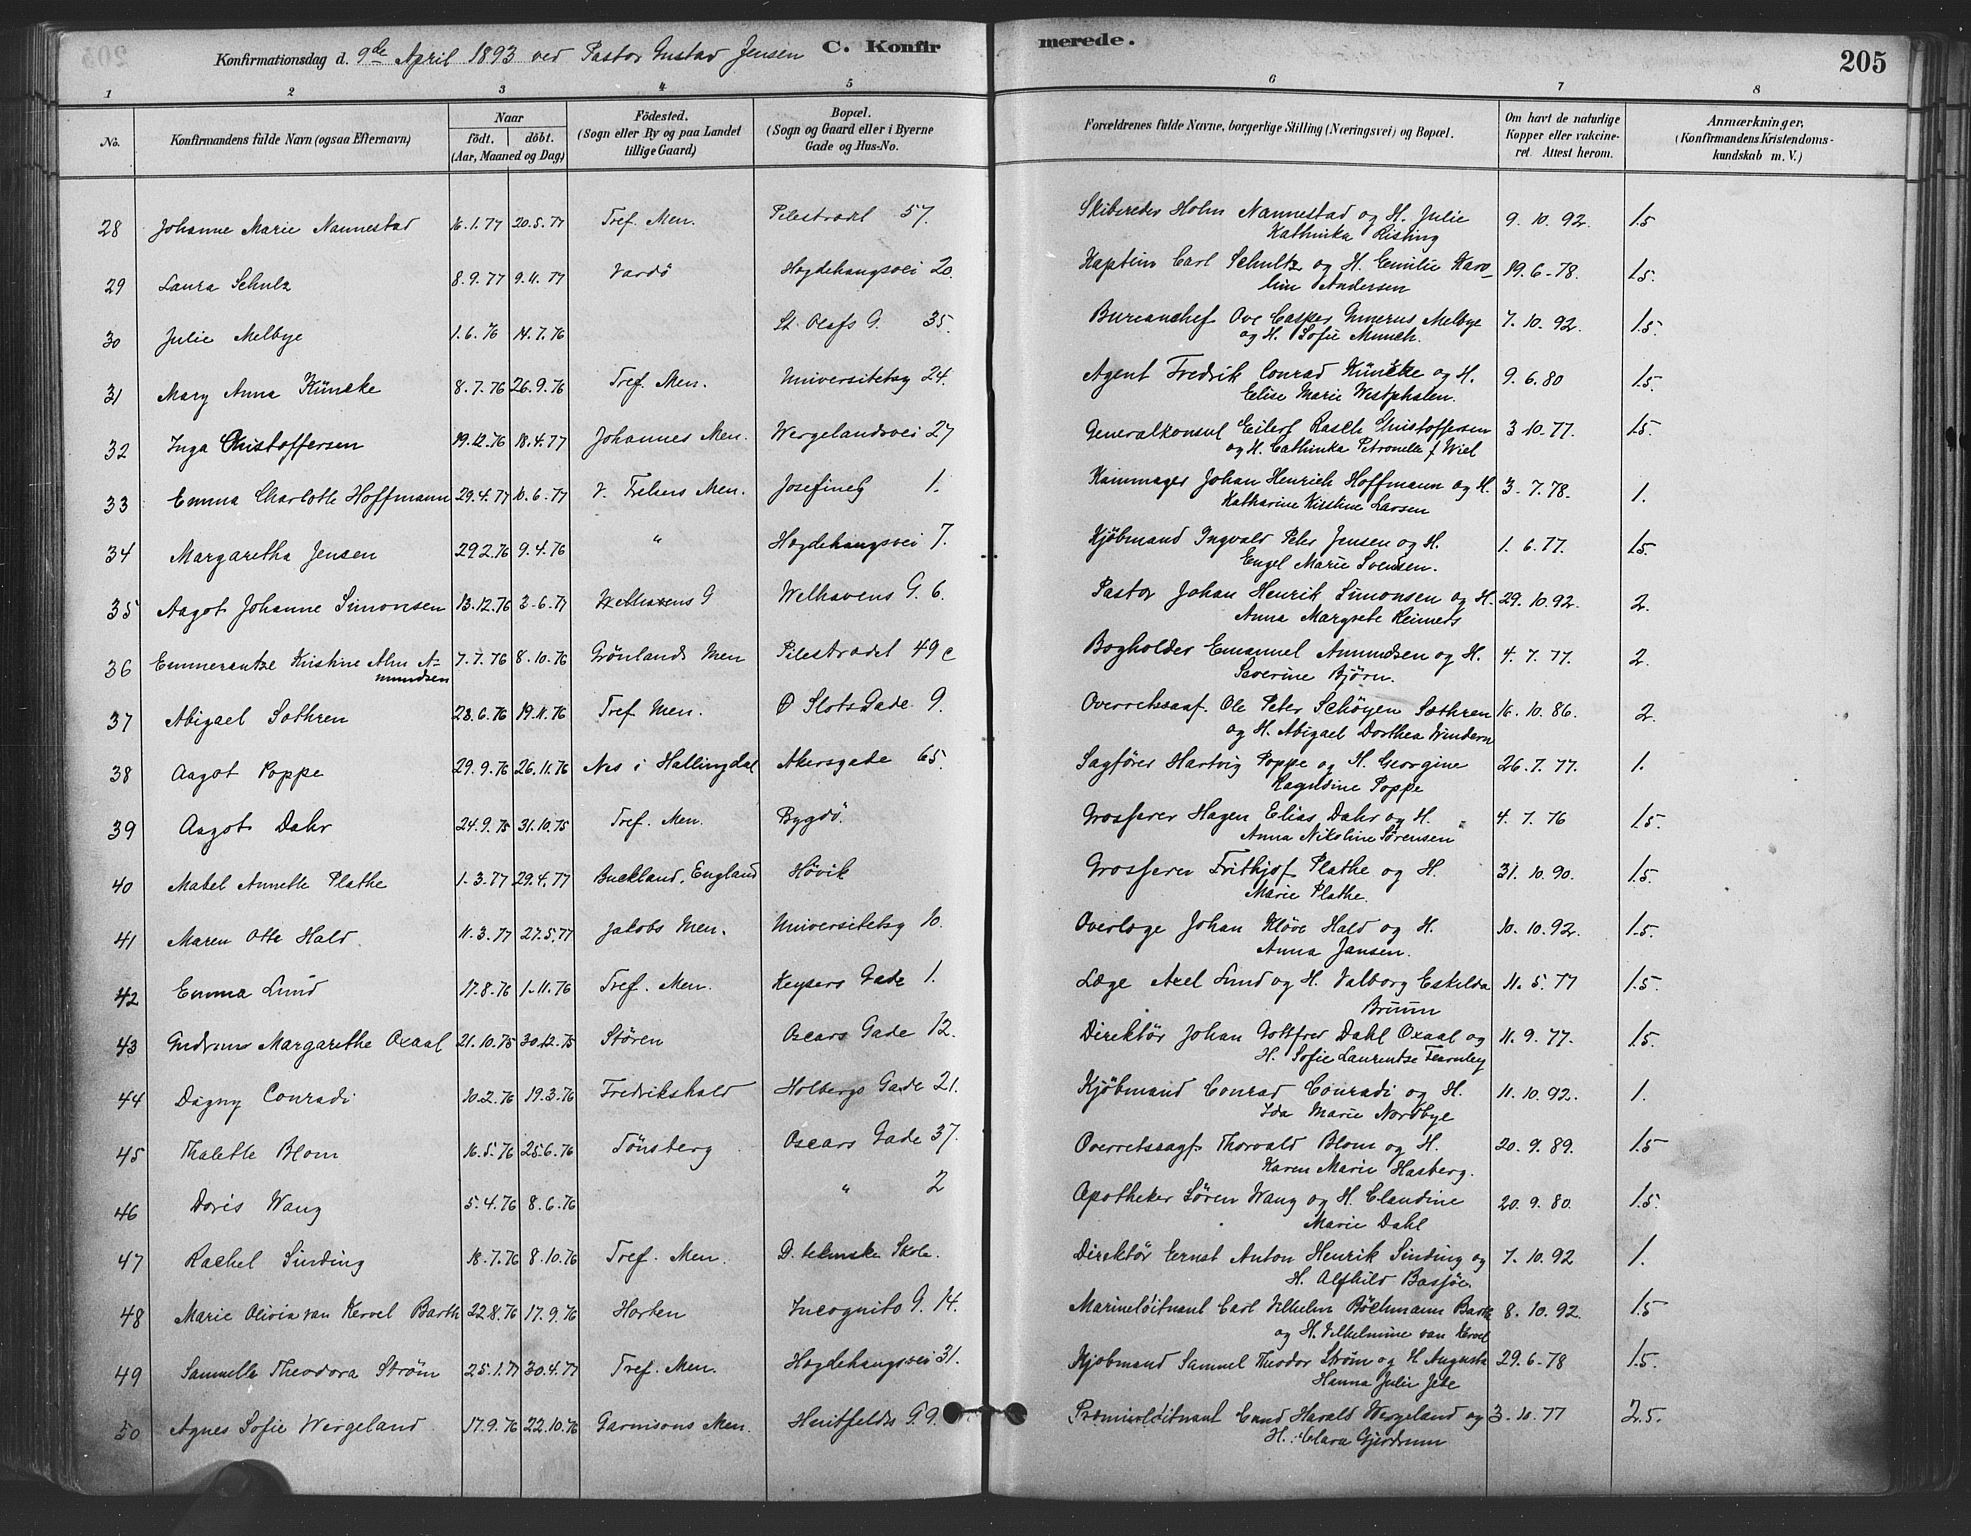 Konfirmationsdag d. 9de April 1893 ved Pastor Gustav Jensen C. Konfirmerede. 205
1 2 3 4 5 6 7 8
No. Konfirmandens fulde Navn (ogsaa Efternavn) Naar födt. döbt. (Aar, Maaned og Dag) Födested. (Sogn eller By og paa Landet tillige Gaard) Bopæl. (Sogn og Gaard eller i Byerne Gade og Hus-No. Forældrenes fulde Navne, borgerlige Stilling (Næringsvei) og Bopæl. Om havt de naturlige Kopper eller vakcineret. Attest herom. Anmærkninger, (Konfirmandens Kristendomskundskab m. V.)
28 Johanne Marie Nannestad 16.1.77 20.5.77 Tref. Men. Pilestrædet 57. Skibsreder Holm Nannestad og H. Julie 9.10.92. 1.5
Kathinka Risting
29 Laura Schulz 8.9.77 9.11.77 Vardö Hægdehaugsvei 20. Kaptein Carl Schultz og H. Emilie Karo- 19.6-78. 1.5.
line Andersen
30 Julie Melbye 1.6.76 14.7.76 St. Olafs G. 35. Bureauchef Ove Casper Gunerus Melbye 7.10.92. 1.5.
og H. Sofie Munch.
31 Mary Anna Küncke 8.7.76 26.9.76 Tref. Men. Universitetsg 24. Agent Fredrik Conrad Küncke og H. 9.6.80 1.5.
Elise Marie Westphalen.
32 Inga Christoffersen 19.12.76 18.4.77 Johannes Men. Wergelandsvei 27 Generalkonsul Eilerf Rasch Christoffersen 3.10.77. 1.5.
og H. Cathinka Petronelle f Wiel
33 Emma Charlotte Hoffmann 29.4.77 10.6.77 V. Frelsers Men. Josefineg 1. Kammager Johan Henrich Hoffmann og H. 3.7.78. 1.
Katharine Kirstine Larsen
34 Margaretha Jensen 29.2.76 9.4.76 " Hægdehaugsvei 7. Kjøbmand Ingvald Peter Jensen og H. 1.6.77. 1.5
Engel Marie Svendsen.
35 Aagot Johanne Simonsen 13.12.76 3.6.77 Welhavens G Welhavens G. 6. Pastor Johan Henrik Simonsen og H. 29.10.92. 2.
Anna Margrete Reimers
36 Emmerentze Kristine Alm A- 7.7.76 8.10.76 Grönlands Men Pilestrædet 49c Bogholder Emanuel Amundsen og H. 4.7.77. 2.
mundsen Severine Bjørn.
37 Abigael Sæthren 23.6.76 19.11.76 Tref. Men. Ø Slots Gade 9. Overretssagf. Ole Peter Schöyen Sæthren 16.10.86. 2.
og H. Abigael Dorthea Windern
38 Aagot Poppe 29.9.76 26.11.76 Nes i Hallingdal Akersgade 65. Sagfører Hartvig Poppe og H. Georgine 26.7.77. 1.
Ragndine Poppe
39 Aagot Dahr 24.9.75 31.10.75 Tref. Men. Bygdö. Grosserer Hagen Elias Dahr og H. 4.7.76 1.5.
Anna Nikoline Sørensen
40 Mabel Annette Plathe 1.3.77 29.4.77 Buckland, England Høvik Grosserer Frithjof Plathe og H. 31.10.90. 1.5.
Marie Plathe.
41 Maren Otte Hald. 11.3.77 27.5.77 Jakobs Men. Universitetsg 10. Overlæge Johan Kløve Hald og H. 10.10.92. 1.5.
Anna Jansen.
42 Emma Lund 17.8.76 1.11.76 Tref. Men. Keysers Gade 1. Læge Axel Lund og H. Valborg Eskilda 11.5.77 1.5.
Bruun
43 Gudrun Margarethe Oxaal 21.10.75 30.12.75 Stören Oscars Gade 12. Direktör Johan Gottfred Dahl Oxaal og 11.9.77. 1.5.
H. Sofie Laurentze Fearnley
44 Dagny Conradi 10.2.76 19.3.76 Fredrikshald Holbergs Gade 21. Kjøbmand Conrad Conradi og H. 11.10.92. 1.
Ida Marie Nordbye
45 Thalette Blom 16.5.76 25.6.76 Tönsberg Oscars Gade 37. Overretssagf. Thorvald Blom og H. 20.9.89. 1.5
Karen Marie Hasberg.
46 Doris Wang 5.4.76 8.6.76 " 2 Apotheker Sören Wang og H. Claudine 20.9.80. 1.5.
Marie Dahl
47 Rachel Sinding 18.7.76 8.10.76 Tref. Men. D. tekniske Skole. Direktör Ernst Anton Henrik Sinding og 7.10.92 1.
H. Alfhild Basjöe.
48 Marie Olivia van Kervel Barth 22.8.76 17.9.76 Horten Incognito G. 14. Marinelöitnant Carl Vilhelm Böchmann Barth 8.10.92. 1.5
og H. Vilhelmine van Kervel
49 Samuelle Theodora Strøm 25.1.77 30.4.77 Tref. Men. Hægdehaugsvei 31. Kjøbmand Samuel Theodor Strøm og H Augusta 29.6-78 1.5.
Hanna Julie Jebe
50 Agnes Sofie Wergeland 17.9.76 22.10.76 Garnisons Men. Huitfeldts G. 9. Premierlöitnant Harald Wergeland og 3.10.77 2.5.
H. Clara Gjerdrum